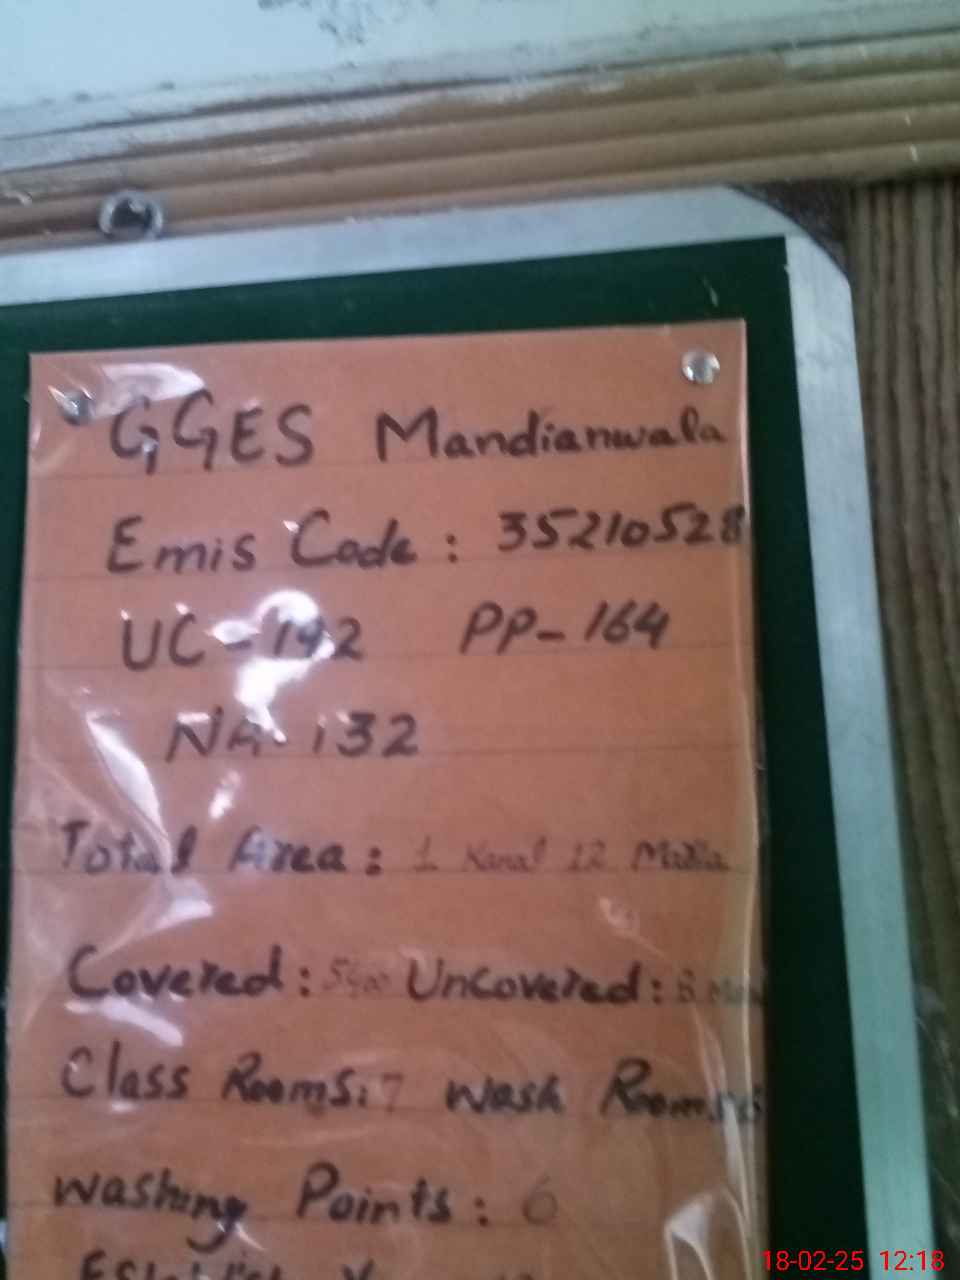 GGES Mandianwala
Emis Code : 35210528
UC - 192 PP - 164
NA - 132
Total Area : 1 Kanal 12 Marla
Covered : Uncovered : 8
Class Rooms : 7 Wash Rooms
Washing Points : 6
18-02-25 12:18